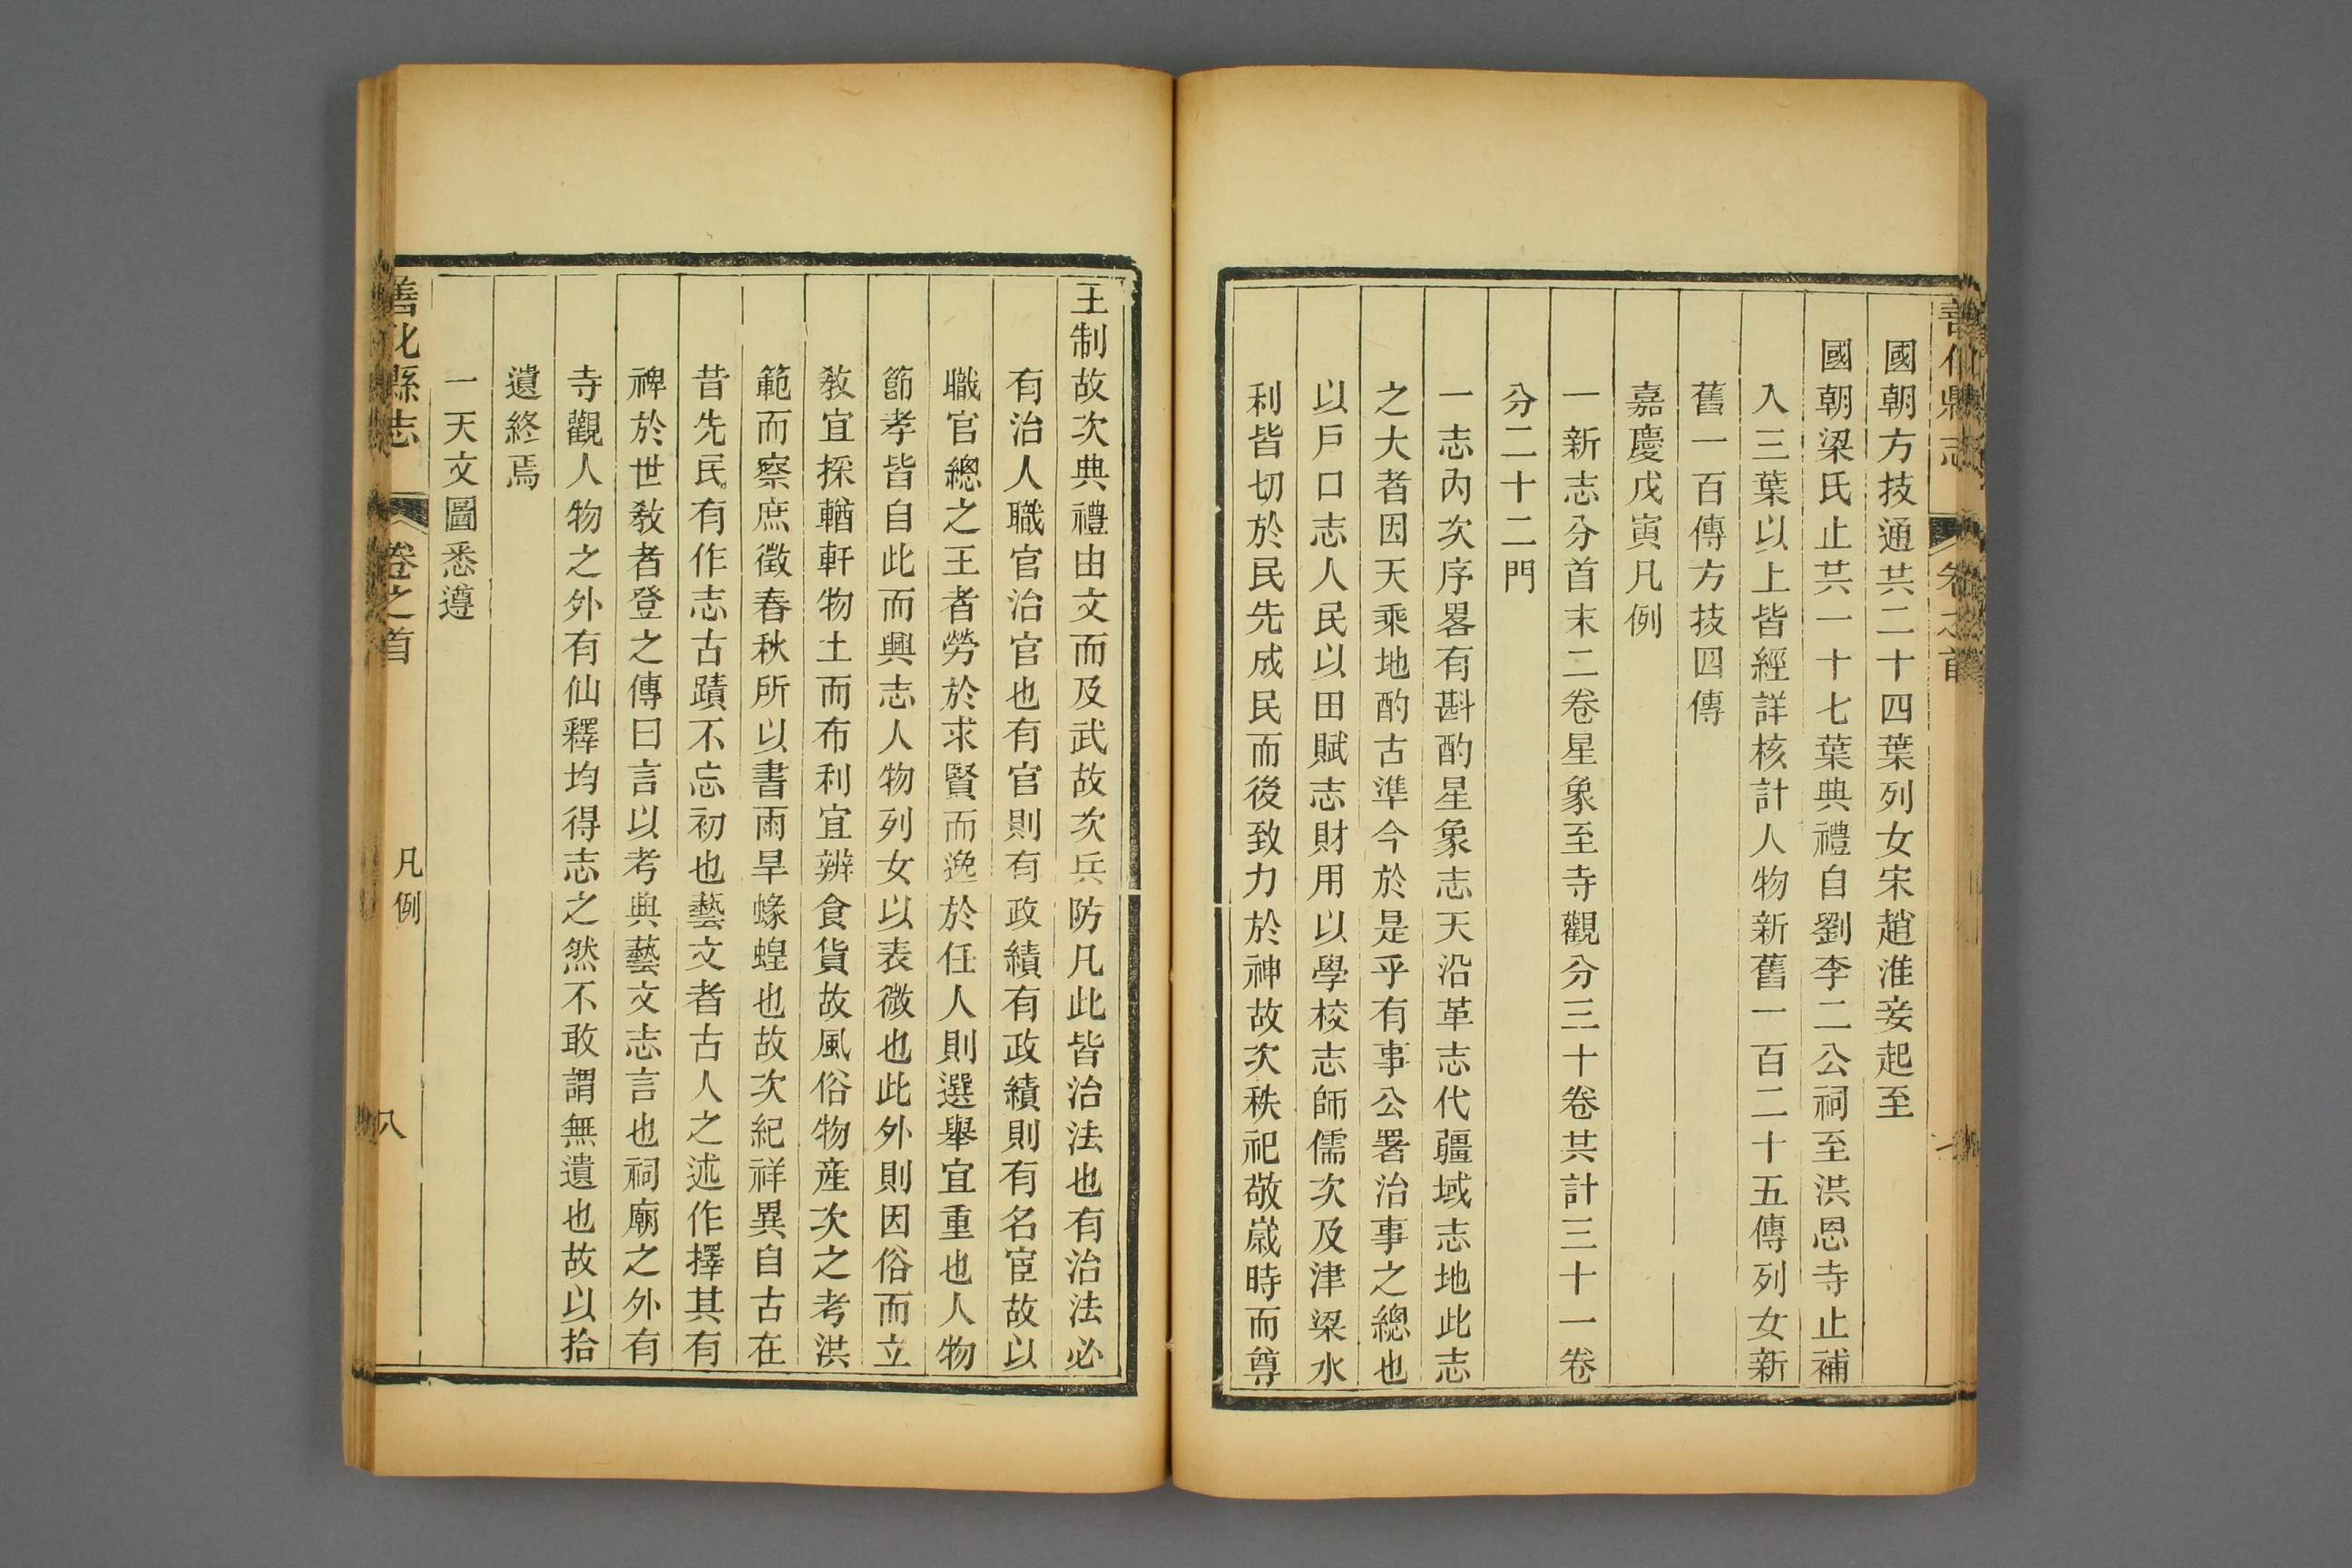 善化縣志
卷之首
國朝方技通共二十四葉列女宋趙淮妾起至
國朝梁氏止共一十七葉典禮自劉李二公祠至洪恩寺止補
入三葉以上皆經詳核計人物新舊一百二十五傳列女新
舊一百傳方技四傳
嘉慶戊寅凡例
一新志分首末二卷星象至寺觀分三十卷共計三十一卷
分二十二門
一志內次序畧有斟酌星象志天沿革志代疆域志地此志
之大者因天乘地酌古準今於是乎有事公署治事之總也
以戶口志人民以田賦志財用以學校志師儒次及津梁水
利皆切於民先成民而後致力於神故次秩祀敬嵗時而尊
王制故次典禮由文而及武故次兵防凡此皆治法也有治法必
有治人職官治官也有官則有政績有政績則有名宦故以
職官總之王者勞於求賢而逸於任人則選舉宜重也人物
節孝皆自此而興志人物列女以表微也此外則因俗而立
敎宜採輶軒物土而布利宜辨食貨故風俗物産次之考洪
範而察庶徵春秋所以書雨旱蝝蝗也故次紀祥異自古在
昔先民有作志古蹟不忘初也藝文者古人之述作擇其有
裨於世敎者登之傳曰言以考典藝文志言也祠廟之外有
寺觀人物之外有仙釋均得志之然不敢謂無遺也故以拾
遺終焉
一天文圖悉遵
善化縣志
卷之首
凡例
八